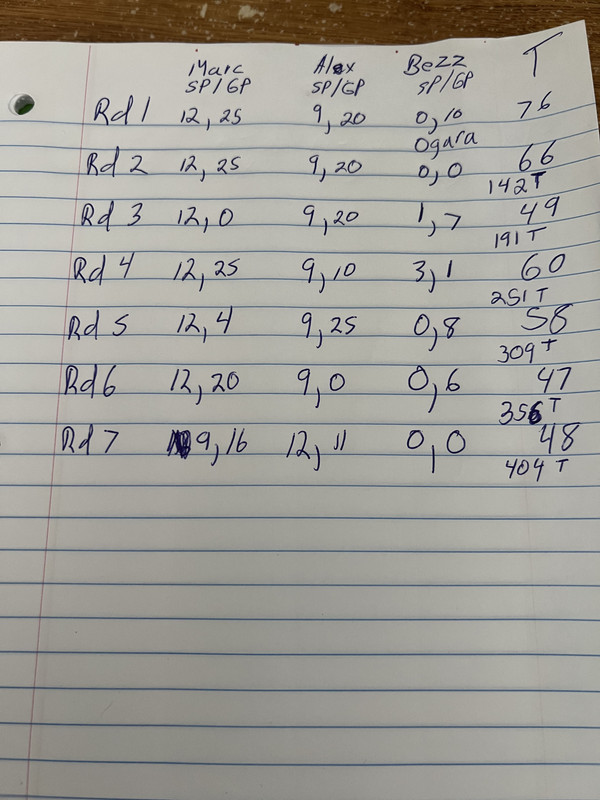 Marc Alex Bezz T
SP/GP SP/GP SP/GP
Rd 1 12, 25 9, 20 0, 10 76
Ogara
Rd 2 12, 25 9, 20 0, 0 66
142 T
Rd 3 12, 0 9, 20 1, 7 49
191 T
Rd 4 12, 25 9, 10 3, 1 60
251 T
Rd 5 12, 4 9, 25 0, 8 58
309 T
Rd 6 12, 20 9, 0 0, 6 47
356 T
Rd 7 9, 16 12, 11 0, 0 48
404 T